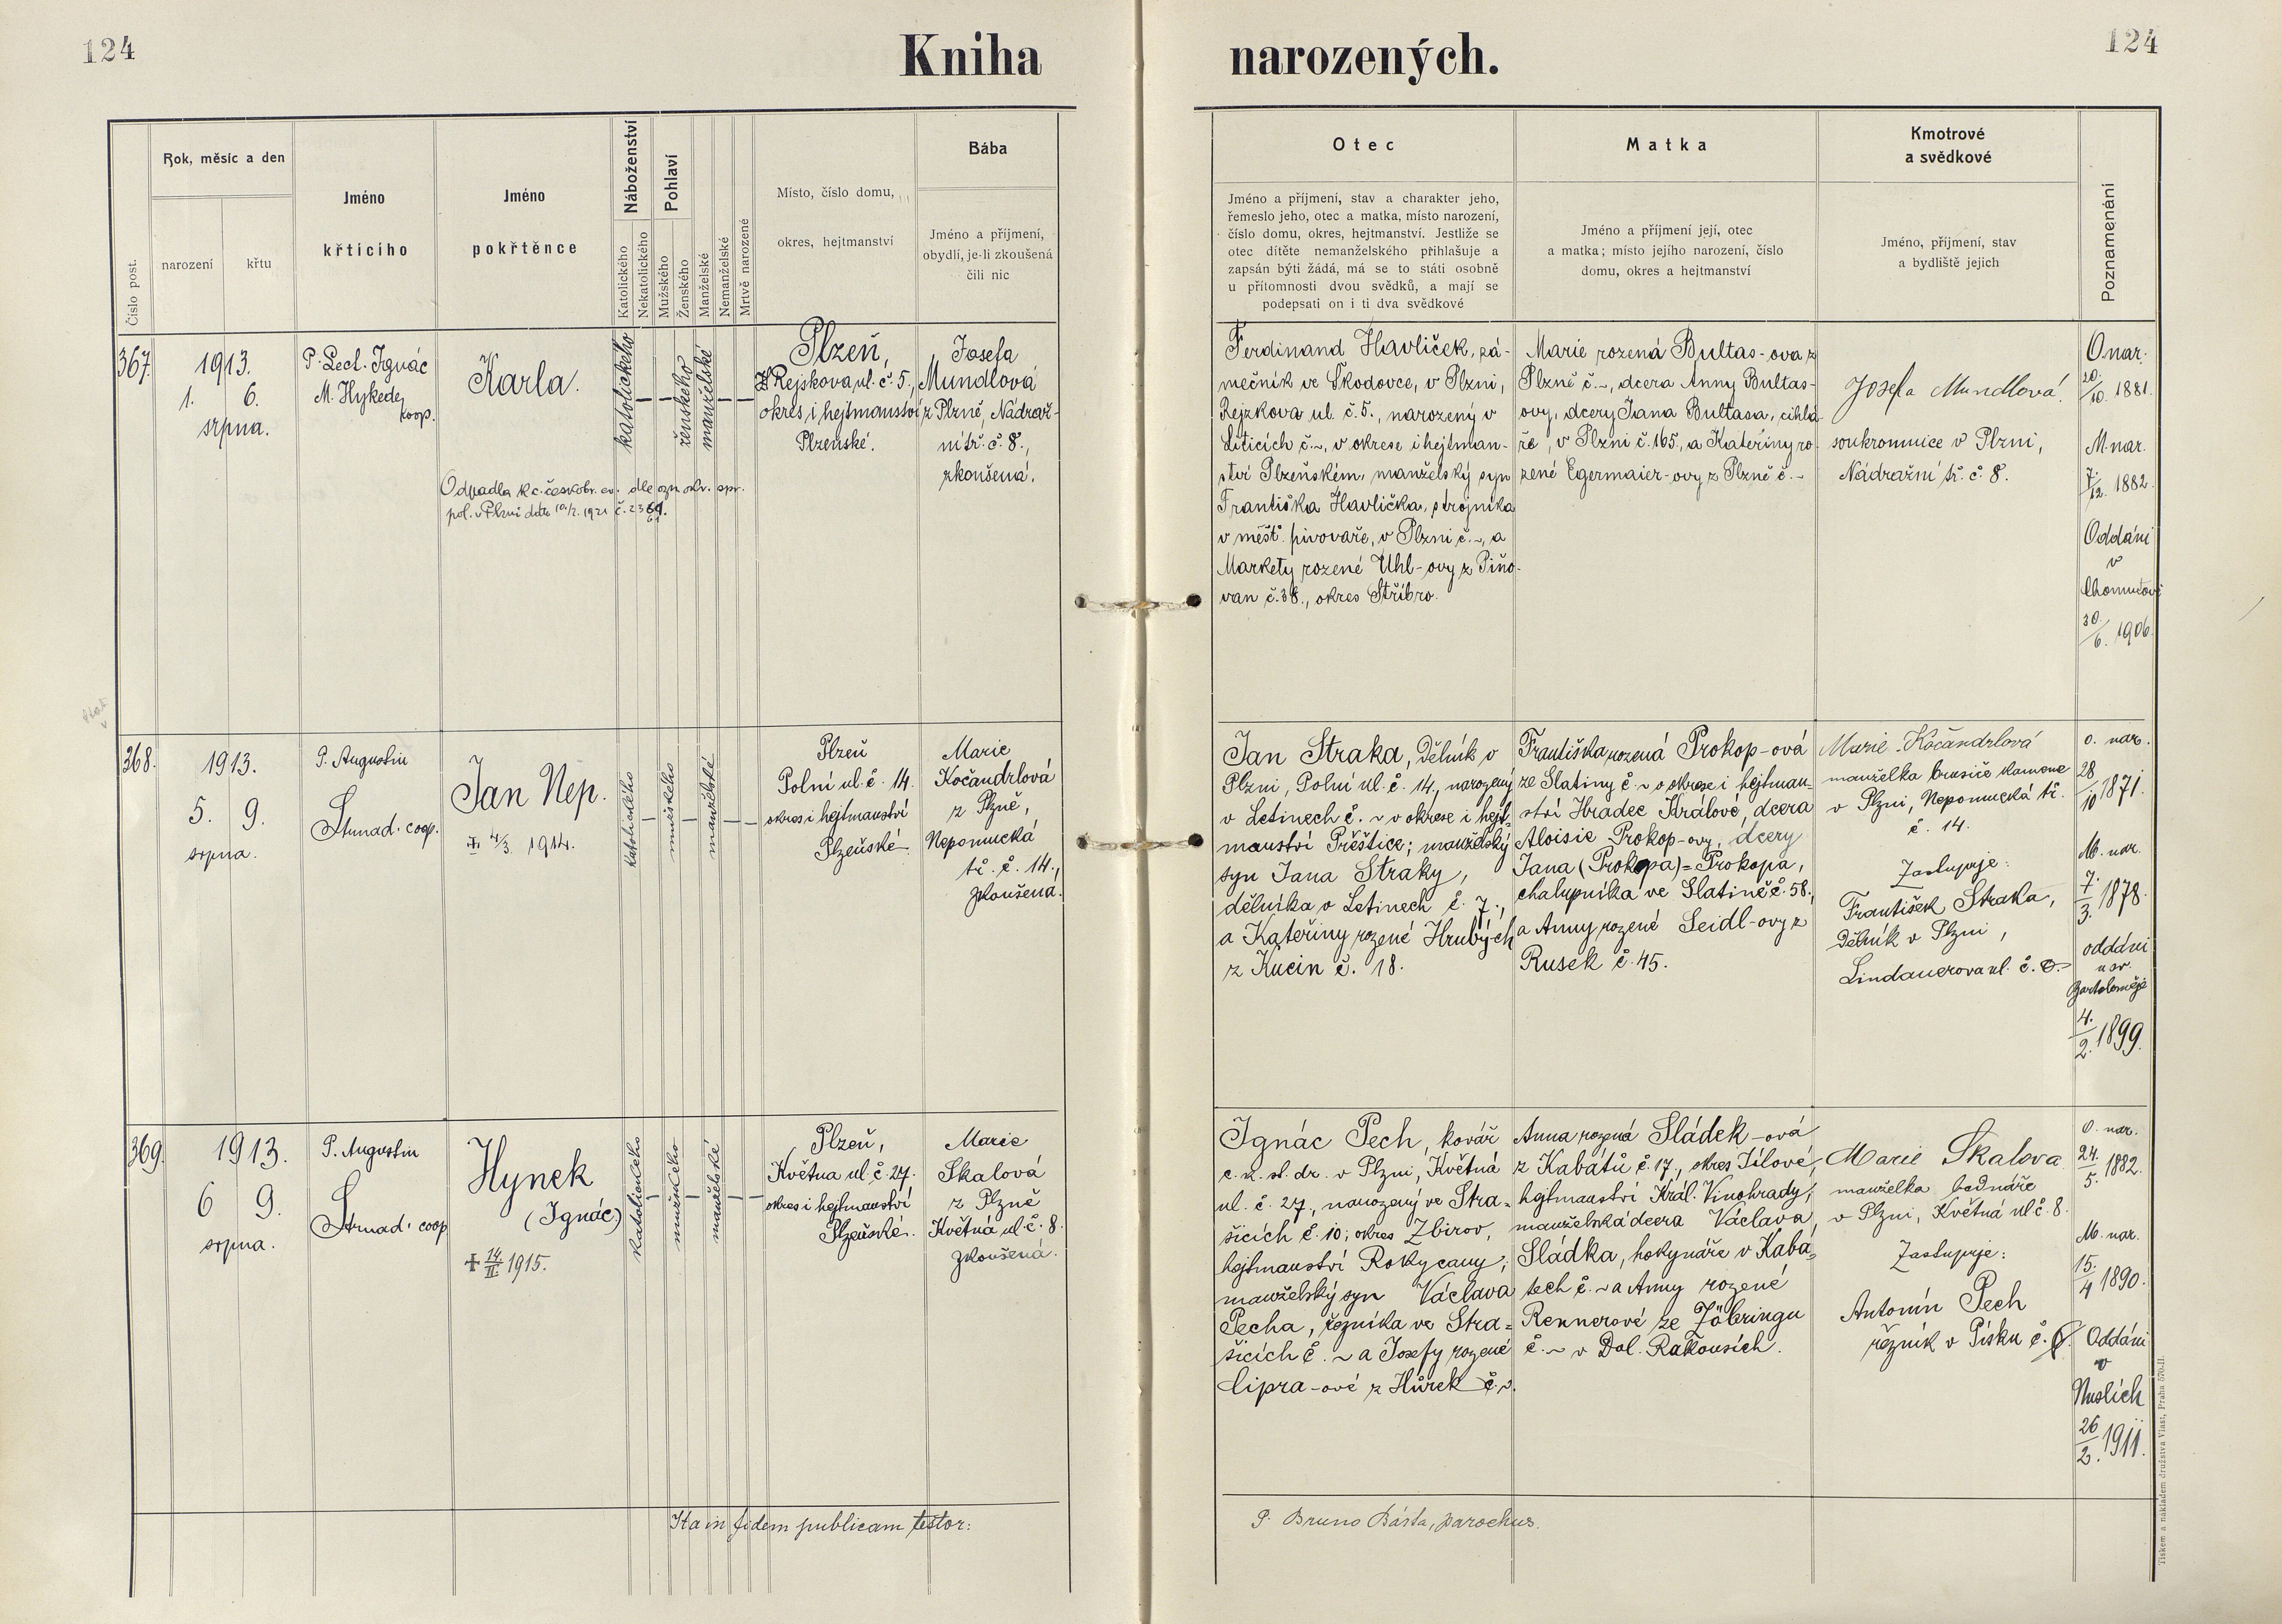 124
Kniha narozených.
124
Číslo post.
Rok, měsíc a den
narození
křtu
Jméno
křticího
Jméno
pokřtěnce
Náboženství
Katolického
Nekatolického
Pohlaví
Mužského
Ženského
Manželské
Nemanželské
Mrtvě narozené
Místo, číslo domu,
okres, hejtmanství
Bába
Jméno a příjmení,
obydlí, je-li zkoušená
čili nic
Otec
Jméno a příjmení, stav a charakter jeho,
řemeslo jeho, otec a matka, místo narození,
číslo domu, okres, hejtmanství. Jestliže se
otec dítěte nemanželského přihlašuje a
zapsán býti žádá, má se to státi osobně
u přítomnosti dvou svědků, a mají se
podepsati on i ti dva svědkové
Matka
Jméno a příjmení její, otec
a matka; místo jejího narození, číslo
domu, okres a hejtmanství
Kmotrové
a svědkové
Jméno, příjmení, stav
a bydliště jejich
Poznamenání
367
1913.
1. 6.
srpna.
P. Lect. Ignác
M. Hykede
coop.
Karla.
Odpadla k c. českobr. ev. dle ozn. okr. spr.
pol. v Plzni dto 10/2. 1921 č.
katolického
ženského
manželské
Plzeň,
Rejskova ul. č. 5.,
okres i hejtmanství
Plzeňské.
Josefa
Mundlová
z Plzně, Nádraž-
ní tř. č. 8.,
zkoušená.
Ferdinand Havlíček, zá-
mečník ve Škodovce, v Plzni,
Rejzkova ul. č. 5., narozený v
Liticích č. ~, v okrese i hejtman-
ství Plzeňském, manželský syn
Františka Havlíčka, strojníka
v měšť. pivovaře, v Plzni č. ~, a
Markety rozené Uhl-ovy z Piňo-
van č. 38., okres Stříbro.
Marie rozená Bultas-ova z
Plzně č. ~, dcera Anny Bultas-
ovy, dcery Jana Bultasa, cihlá-
ře, v Plzni č. 165, a Kateřiny ro-
zené Egermaier-ovy z Plzně č. ~
Josefa Mundlová.
soukromnice v Plzni,
Nádražní tř. č. 8.
O nar.
20./10. 1881.
M nar.
7./12. 1882.
Oddáni
v
Chomutově
30./6. 1906.
368.
1913.
5. 9.
srpna.
P. Augustin
Strnad. coop.
Jan Nep.
+ 4/3. 1914.
katolického
mužského
manželské
Plzeň
Polní ul. č. 14.
okres i hejtmanství
Plzeňské
Marie
Kočandrlová
z Plzně,
Nepomucká
tř. č. 14.,
zkoušena.
Jan Straka, dělník v
Plzni, Polní ul. č. 14., narozený
v Letinech č. ~ v okrese i hejt-
manství Přeštice; manželský
syn Jana Straky,
dělníka v Letinech č. 7.,
a Kateřiny rozené Hrubých
z Kucin č. 18.
Františka rozená Prokop-ová
ze Slatiny č ~ v okrese i hejtman-
ství Hradec Králové, dcera
Aloisie Prokop-ovy, dcery
Jana (Prokopa) = Prokopa,
chalupníka ve Slatině č. 58.,
a Anny rozené Seidl-ovy z
Rusek č. 45.
Marie Kočandrlová
manželka brusiče kamene
v Plzni, Nepomucká tř.
č. 14.
Zastupuje:
František Straka,
dělník v Plzni,
Lindauerova ul. č.
o. nar.
28/10 1871.
M. nar.
7./3. 1878.
oddáni
u sv.
Bartoloměje
4./2. 1899.
369.
1913.
6 9.
srpna.
P. Augustin
Strnad. coop
Hynek
(Ignác)
+ 14./II. 1915.
katolického
mužského
manželské
Plzeň,
Května ul č. 27.
okres i hejtmanství
Plzeňské.
Marie
Skalová
z Plzně
Květná ul č. 8.
zkoušená.
Ignác Pech, kovář
c. k. st. dr. v Plzni, Květná
ul. č. 27., narozený ve Stra=
šicích č. 10; okres Zbirov,
hejtmanství Rokycany;
manželský syn Václava
Pecha, řezníka ve Stra=
šicích č. ~ a Josefy rozené
Cipra-ové z Hůrek č. ~.
Anna rozená Sládek-ová
z Kabátů č. 17., okres Jílové,
hejtmanství Král. Vinohrady;
manželská dcera Václava
Sládka, hokynáře v Kabá=
tech č. ~ a Anny rozené
Rennerové ze Jöbringu
č. ~ v Dol. Rakousích.
Marie Skalova
manželka bednáře
v Plzni, Květná ul č. 8.
Zastupuje:
Antonín Pech
řezník v Písku č.
O. nar.
24./5. 1882.
M. nar.
15./4 1890.
Oddáni
v
Nuslích
26/2. 1911.
Ita in fidem publicam testor:
P. Bruno Bárta, parochus.
Tiskem a nákladem družstva Vlast, Praha 570-II.